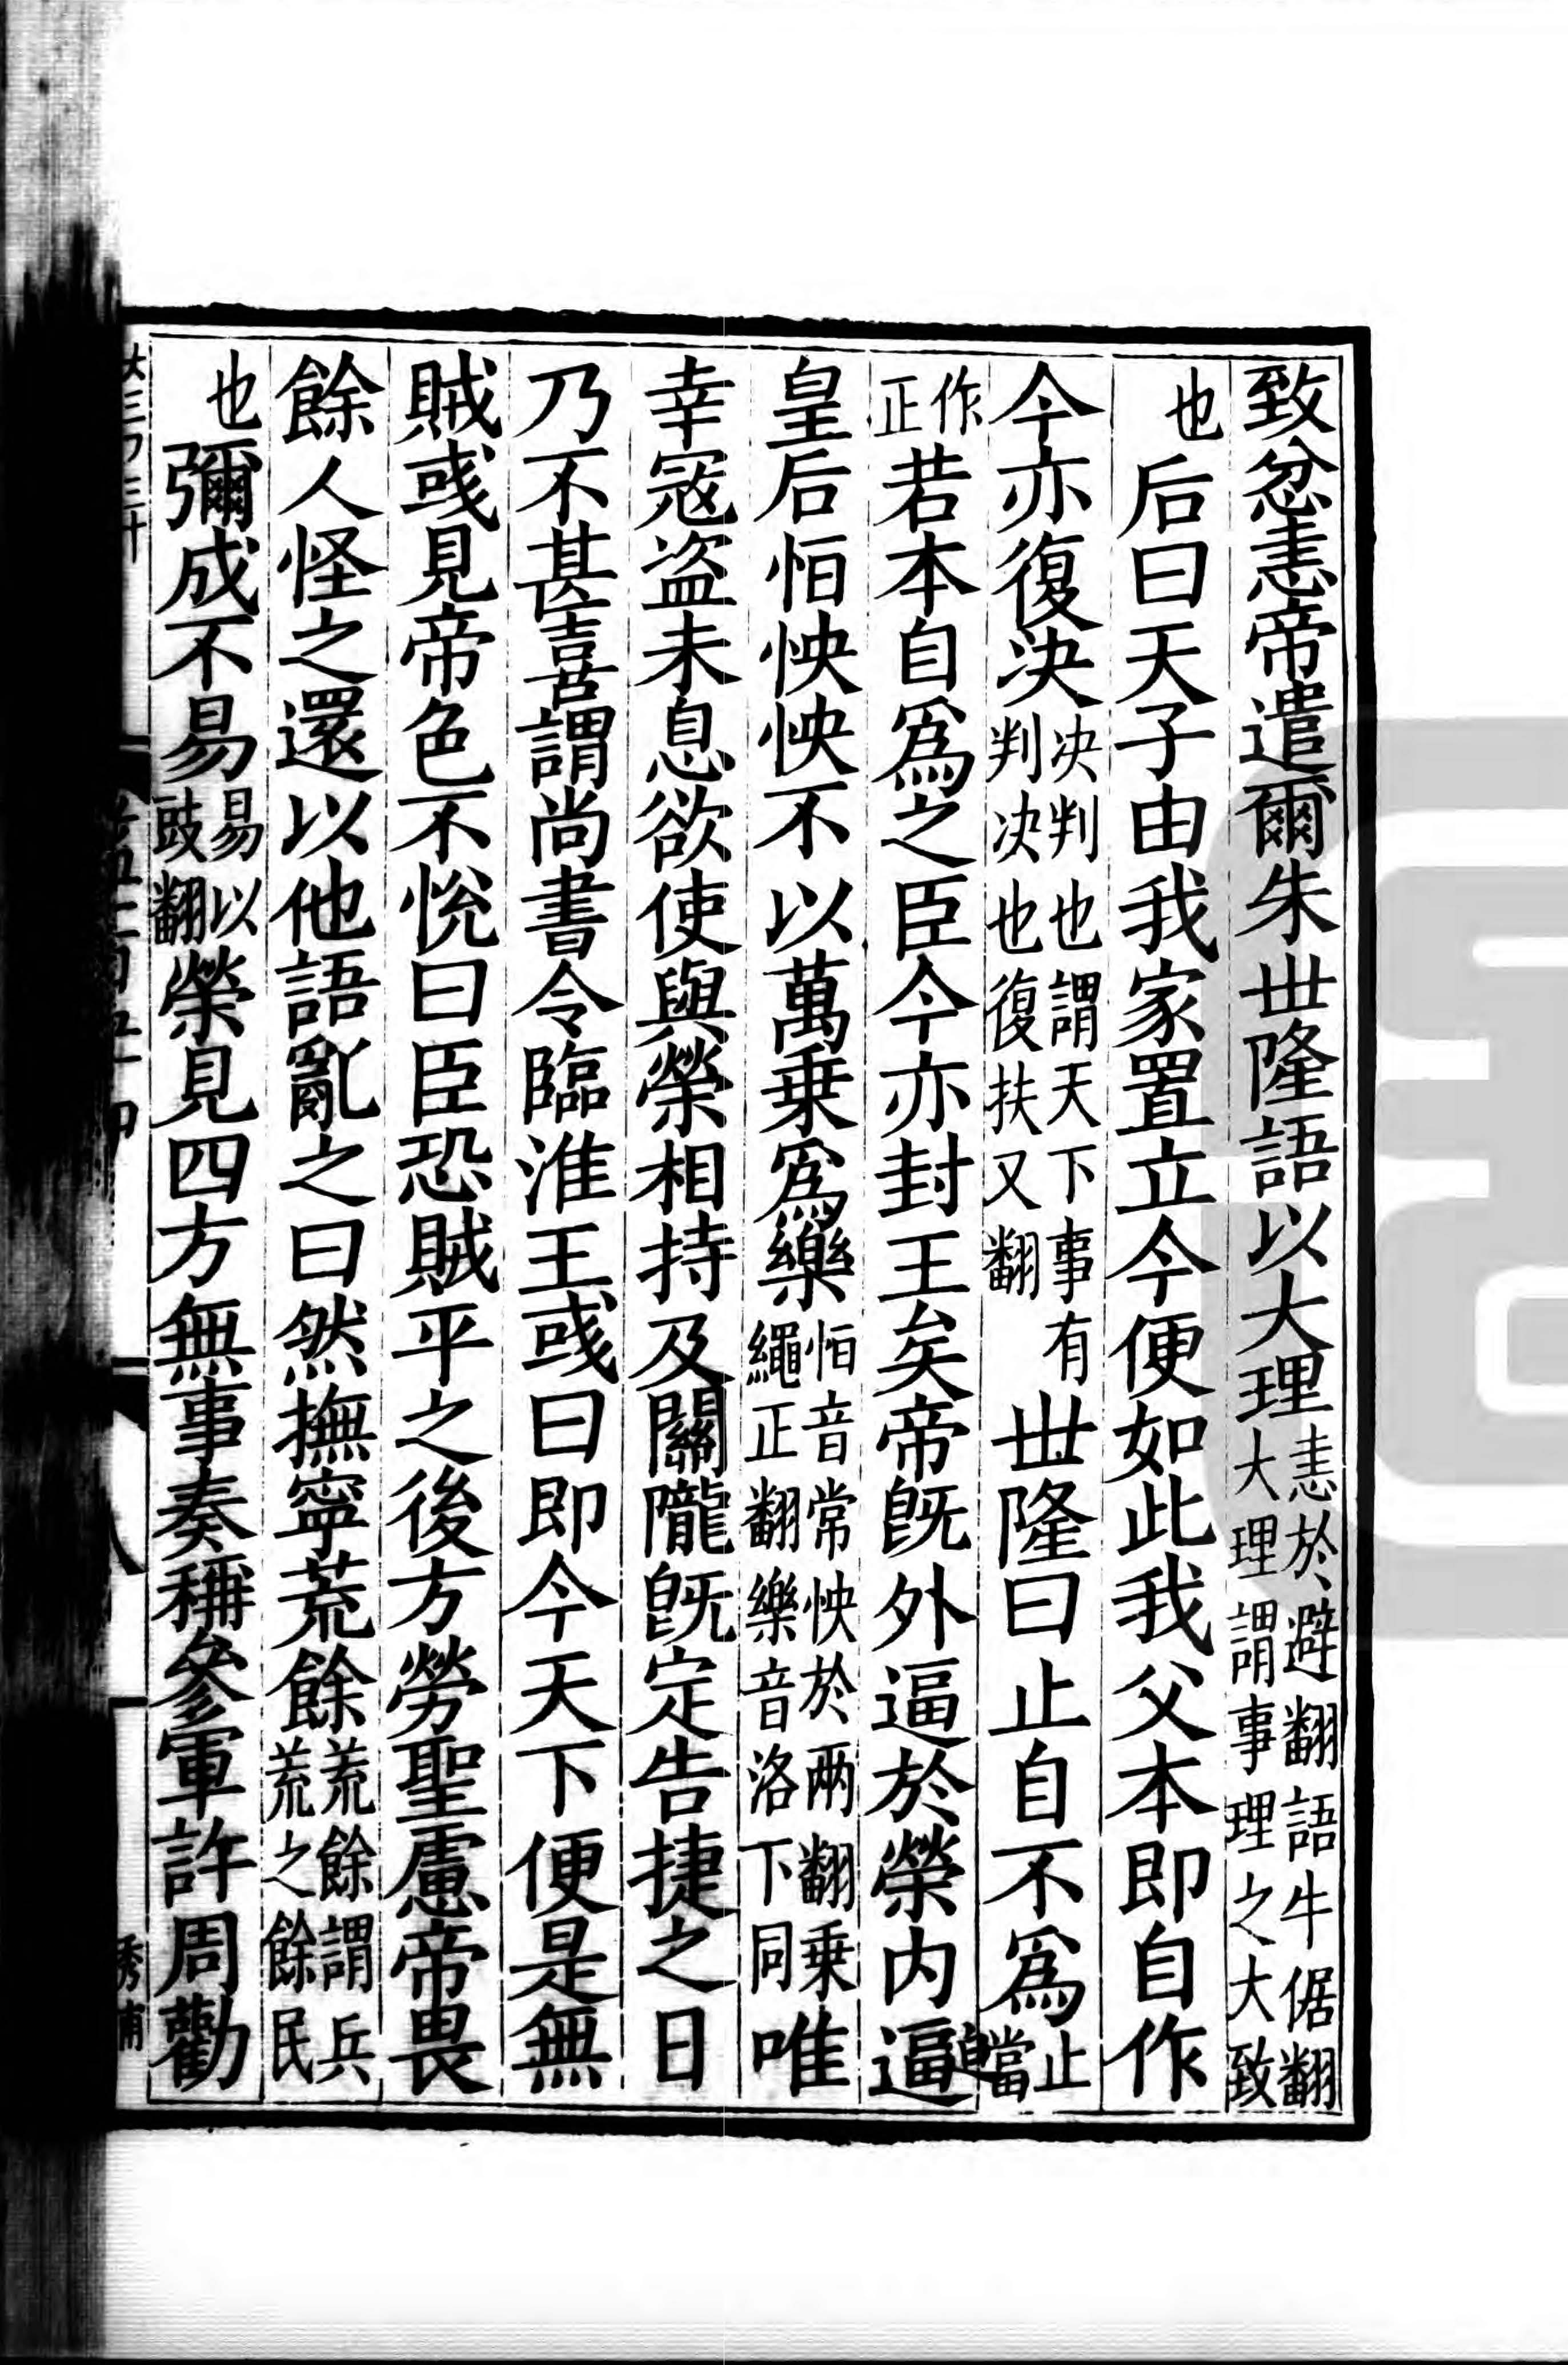 致忿恚帝遣爾朱世隆語以大理恚於避翻語牛倨翻大理謂事理之大致
也后曰天子由我家置立今便如此我父本即自作
今亦復决决判也謂天下事有判决也復扶又翻世隆曰止自不爲止當
作正若本自爲之臣今亦封王矣帝旣外逼於榮内逼
皇后恒怏怏不以萬乗爲樂恒音常怏於兩翻乗繩正翻樂音洛下同唯
幸寇盜未息欲使與榮相持及關隴旣定告捷之日
乃不甚喜謂尚書令臨淮王彧曰即今天下便是無
賊彧見帝色不悅曰臣恐賊平之後方勞聖慮帝畏
餘人怪之還以他語亂之曰然撫寧荒餘荒餘謂兵荒之餘民
也彌成不易易以豉翻榮見四方無事奏稱參軍許周勸